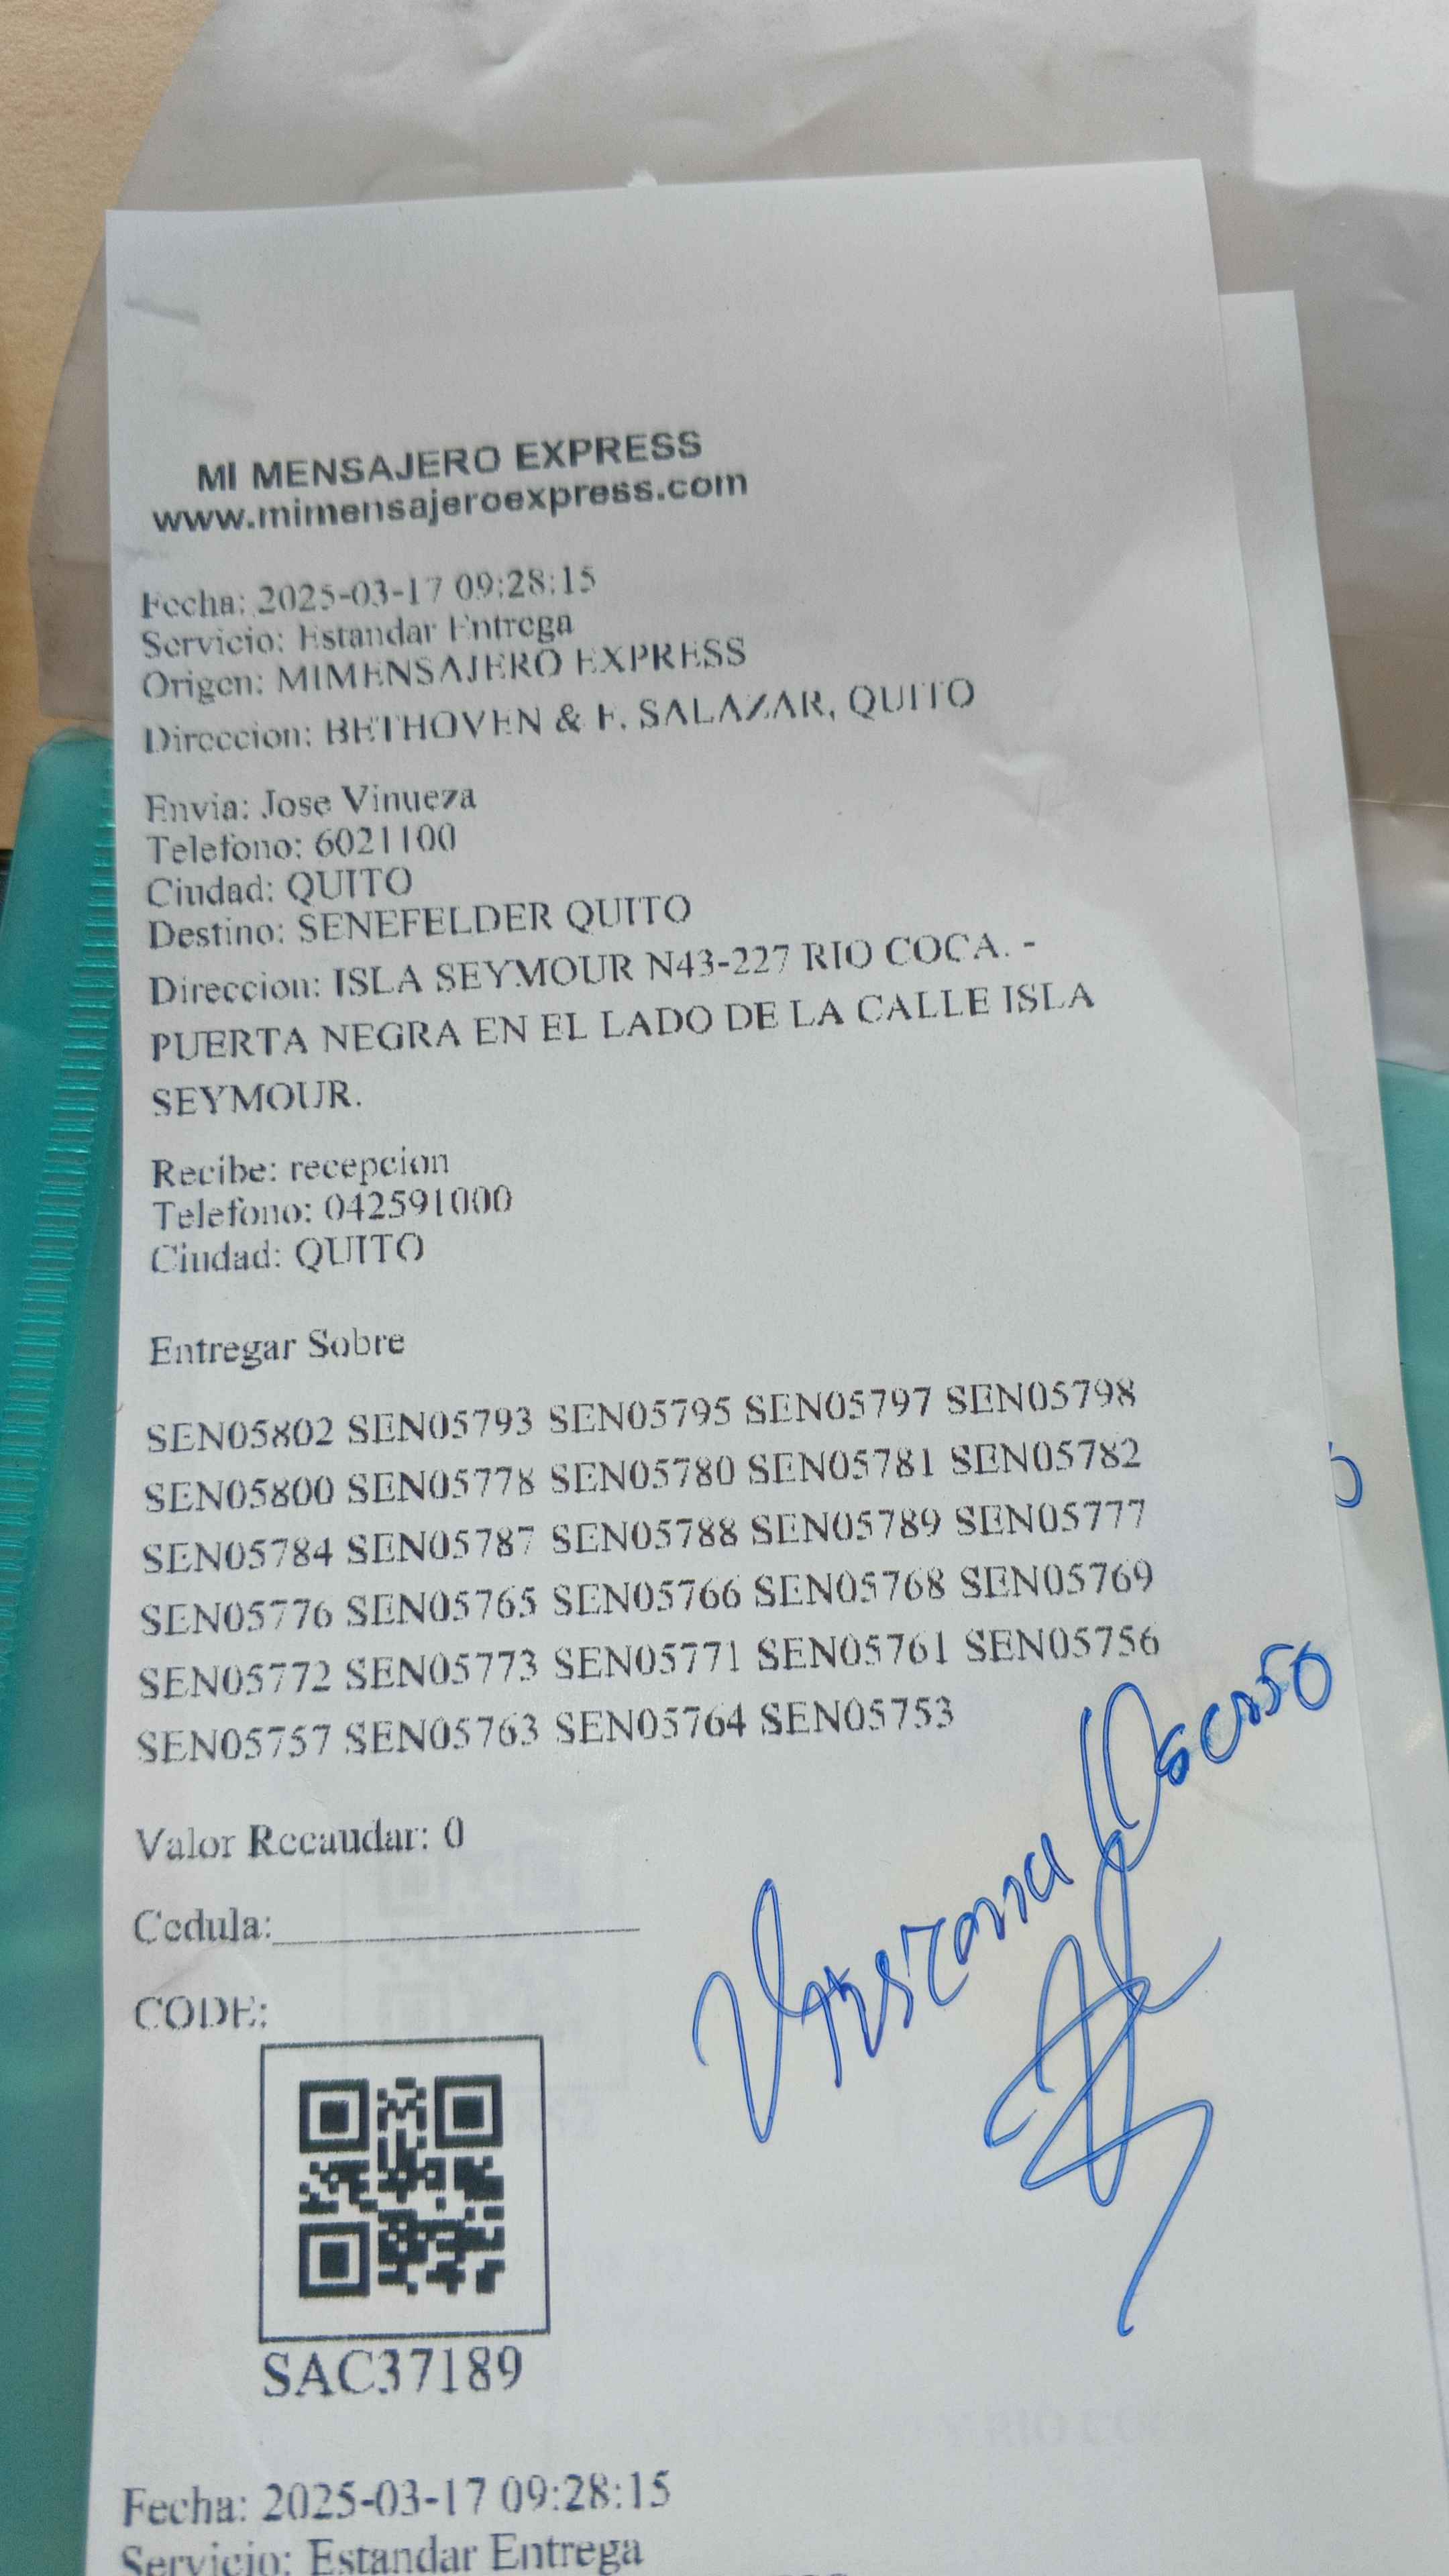 MI MENSAJERO EXPRESS
www.mimensajeroexpress.com
Fecha: 2025-03-17 09:28:15
Servicio: Estandar Entrega
Origen: MIMENSAJERO EXPRESS
Direccion: BETHOVEN & F. SALAZAR, QUITO
Envia: Jose Vinueza
Telefono: 6021100
Ciudad: QUITO
Destino: SENEFELDER QUITO
Direccion: ISLA SEYMOUR N43-227 RIO COCA. -
PUERTA NEGRA EN EL LADO DE LA CALLE ISLA
SEYMOUR.
Recibe: recepcion
Telefono: 042591000
Ciudad: QUITO
Entregar Sobre
SEN05802 SEN05793 SEN05795 SEN05797 SEN05798
SEN05800 SEN05778 SEN05780 SEN05781 SEN05782
SEN05784 SEN05787 SEN05788 SEN05789 SEN05777
SEN05776 SEN05765 SEN05766 SEN05768 SEN05769
SEN05772 SEN05773 SEN05771 SEN05761 SEN05756
SEN05757 SEN05763 SEN05764 SEN05753
Valor Recaudar: 0
Cedula:
CODE:
SAC37189
Fecha: 2025-03-17 09:28:15
Servicio: Estandar Entrega